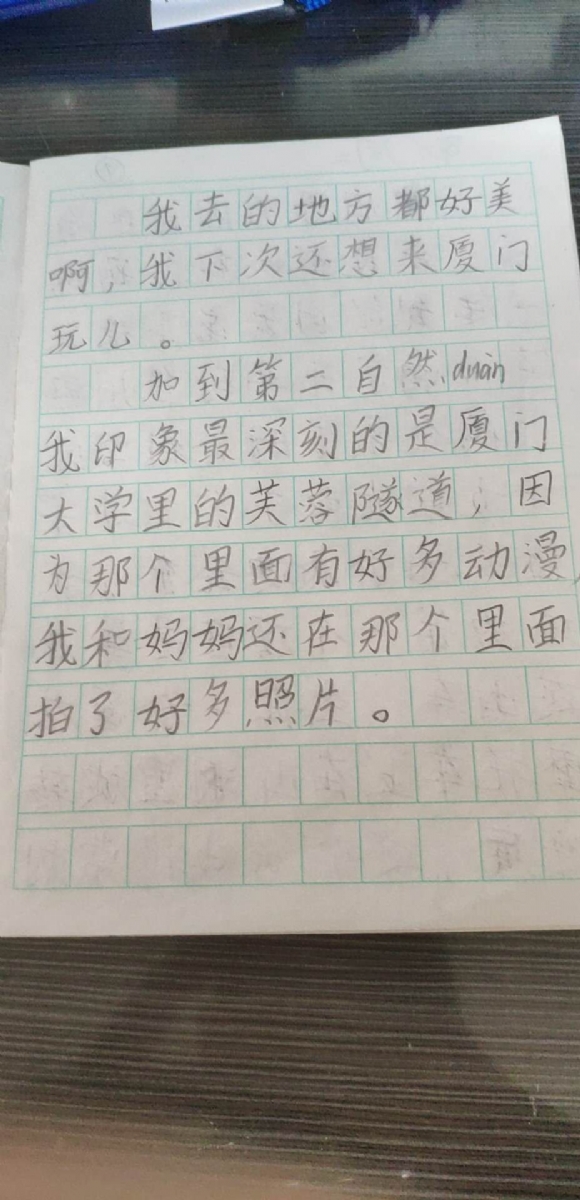 我去的地方都好美
啊，我下次还想来厦门
玩儿。
加到第二自然duàn
我印象最深刻的是厦门
大学里的芙蓉隧道，因
为那个里面有好多动漫，
我和妈妈还在那个里面
拍了好多照片。